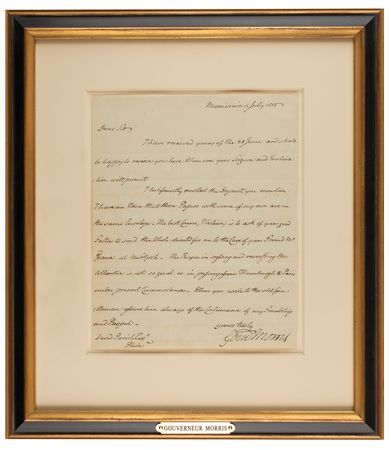 Morrisania 4 July 1815
Dear Sir
I have received yours of the 28 June and shall
be happy to receive you here when your Leisure and Inclina
tion will permit.
I perfectly recollect the Deposit you mention
I have an Idea that those Papers with some of my own are in
the same Envelope. The best Course, I believe, is to ask of your good
Father to send the whole directed for me to the Care of your Friend Mr
at New York. The Danger in crossing and recrossing the
Atlantic is not so great as in passing from Hamburgh to Paris
under present Circumstances. When you write to the old Gen
tleman assure him always of the Continuance of my Friendship
and Respect.
yours truly
Gouv Morris
David Parish Esqr
Phila
GOUVERNEUR MORRIS